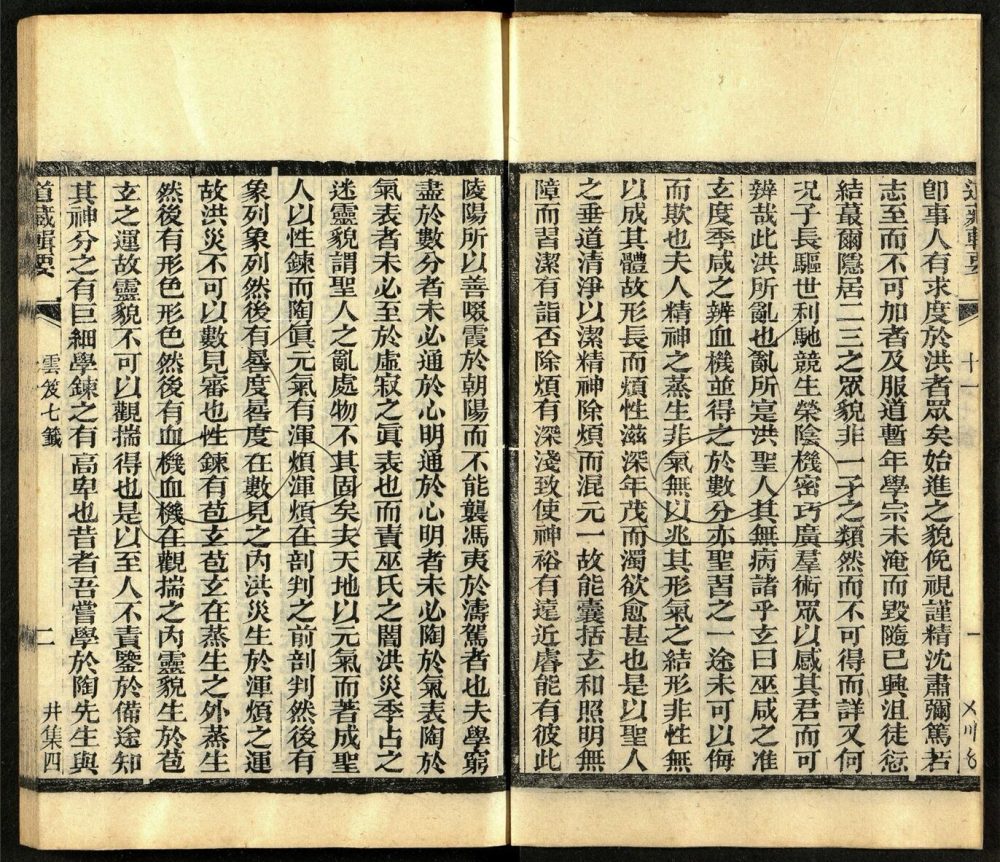 卽事人有求度於洪者眾矣始進之貌俛視謹精沈肅彌篤若
志至而不可加者及服道暫年學宗未淹而毀隨已興沮徒愆
結蕞爾隱居二三之眾貌非一子之類然而不可得而詳又何
況子長驅世利馳競生榮陰機密巧廣羣術眾以感其君而可
辨哉此洪所亂也亂所寔洪聖人其無病諸乎玄曰巫咸之准
玄度季咸之辨血機並得之於數分亦聖習之一途未可以侮
而欺也夫人精神之蒸生非氣無以兆其形氣之結形非性無
以成其體故形長而煩性滋深年茂而濁欲愈甚也是以聖人
之垂道清淨以潔精神除煩而混元一故能囊括玄和照明無
障而習潔有詣否除煩有深淺致使神裕有遠近睿能有彼此
十一
陵陽所以善啜霞於朝陽而不能襲馮夷於濤駕者也夫學窮
盡於數分者未必通於心明通於心明者未必陶於氣表陶於
氣表者未必至於虛寂之眞表也而責巫氏之闇洪災季占之
迷靈貌謂聖人之亂處物不其固矣夫天地以元氣而著成聖
人以性鍊而陶眞元氣有渾煩渾煩在剖判之前剖判然後有
象列象列然後有晷度晷度在數見之內洪災生於渾煩之運
故洪災不可以數見審也性鍊有苞玄苞玄在蒸生之外蒸生
然後有形色形色然後有血機血機在觀揣之內靈貌生於苞
玄之運故靈貌不可以觀揣得也是以至人不責鑒於備途知
其神分之有巨細學鍊之有高卑也昔者吾嘗學於陶先生與
道藏輯要 雲笈七籤 二 井集四